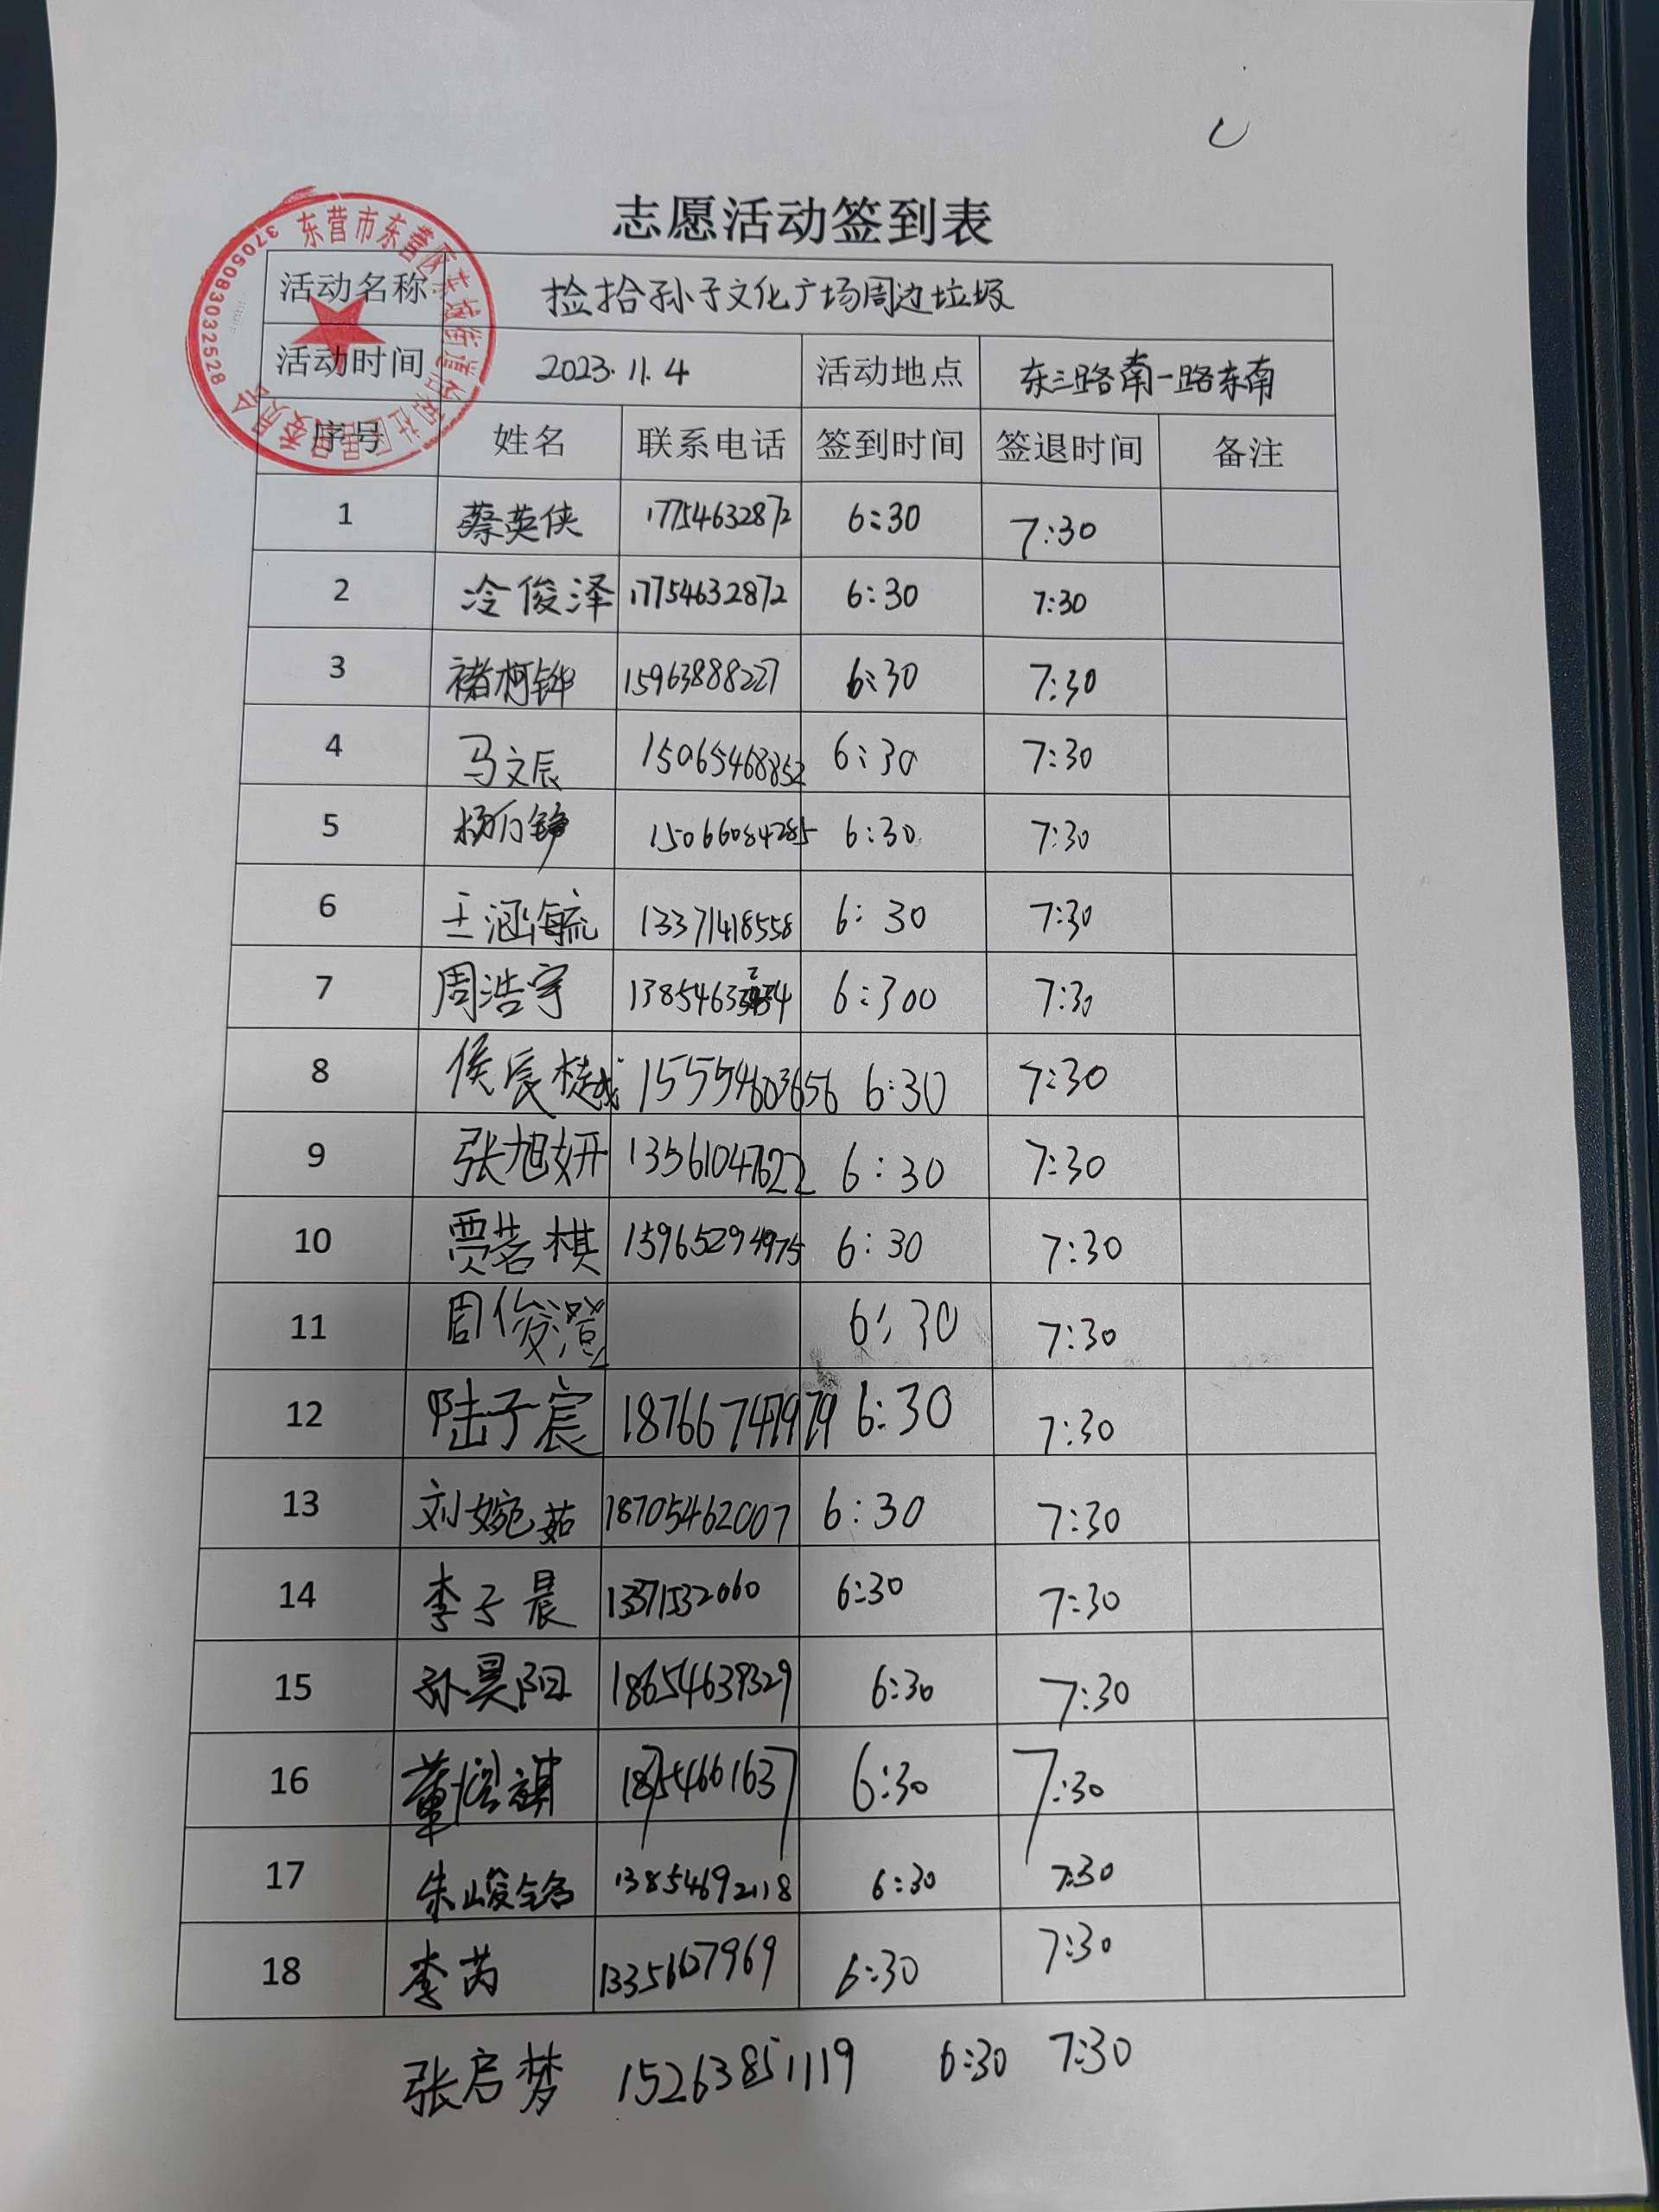 志愿活动签到表
东营市东营区东城街道怡和社区居民委员会
3705083032528
活动名称 捡拾孙子文化广场周边垃圾
活动时间 2023.11.4 活动地点 东三路南一路东南
序号 姓名 联系电话 签到时间 签退时间 备注
1 蔡英侠 17754632872 6:30 7:30
2 冷俊泽 17754632872 6:30 7:30
3 褚柯铧 15963888227 6:30 7:30
4 马文辰 15065468852 6:30 7:30
5 15066084285 6:30 7:30
6 王涵毓 13371418558 6:30 7:30
7 周浩宇 6:300 7:30
8 侯宸越 15554603656 6:30 7:30
9 张旭妍 13561047622 6:30 7:30
10 贾茗棋 15965294975 6:30 7:30
11 周俊澄 6:30 7:30
12 陆子宸 18766747979 6:30 7:30
13 刘婉茹 18705462007 6:30 7:30
14 李子晨 6:30 7:30
15 孙昊阳 18654639329 6:30 7:30
16 18754661637 6:30 7:30
17 朱峻铭 13854692118 6:30 7:30
18 李芮 13356607969 6:30 7:30
张启梦 15263851119 6:30 7:30